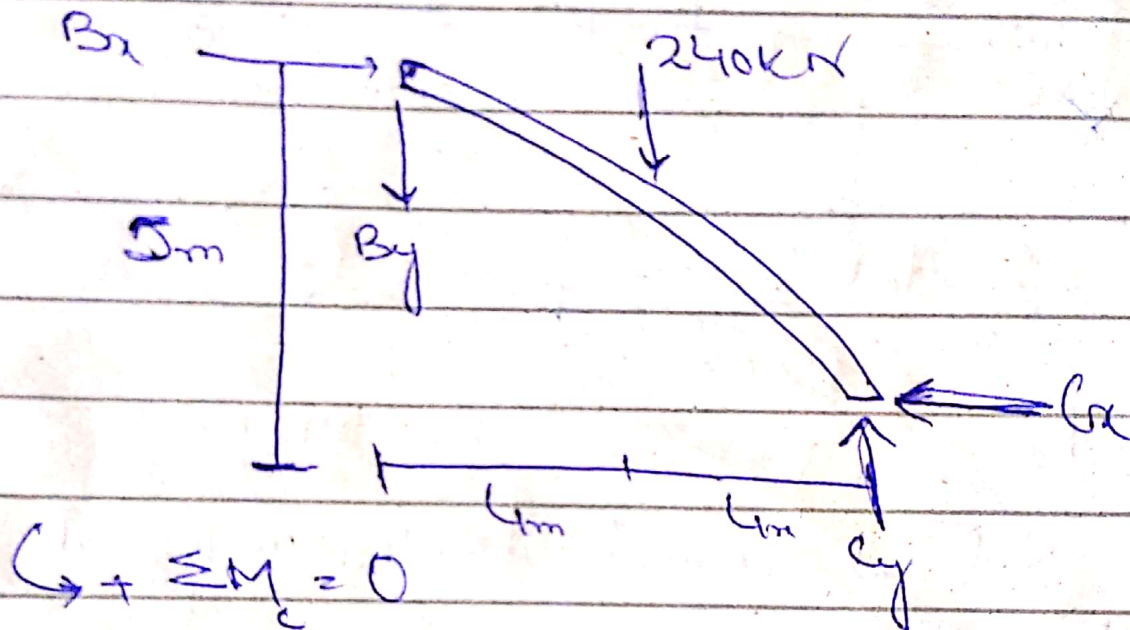 Bx
240KN
5m
By
Cx
4m
4m
Cy
↪+ ΣM_c = 0